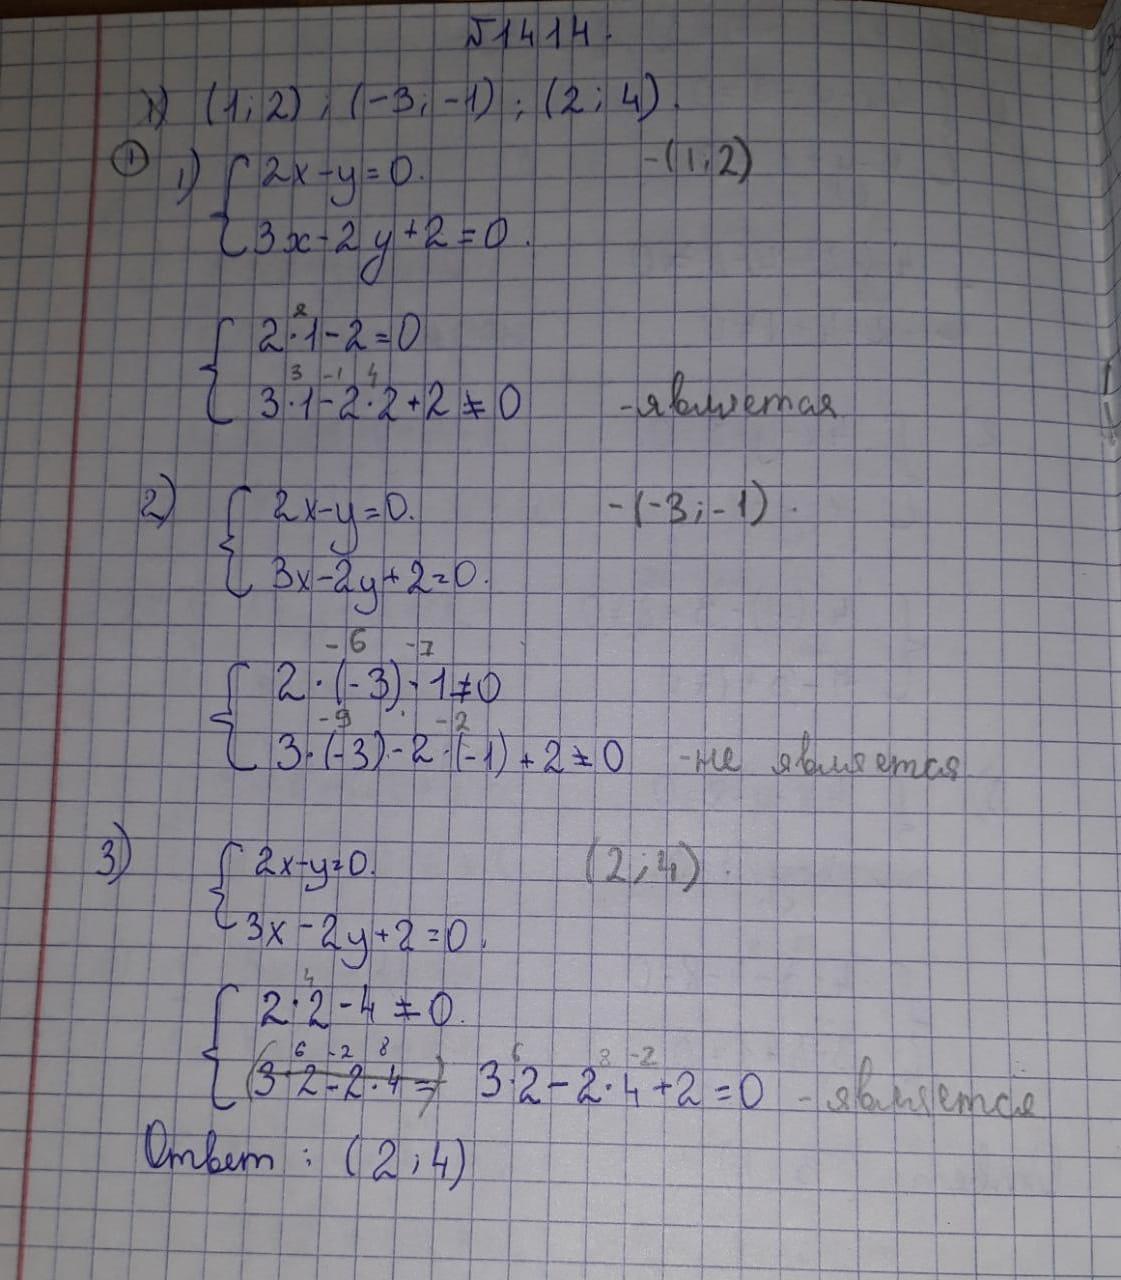 №1414.
1) (1; 2); (-3; -1); (2; 4).
① 1) { 2x-y=0. -(1;2)
3x-2y+2=0.
2
{ 2·1-2=0
3 -1 4
3·1-2·2+2≠0 -является
2) { 2x-y=0. -(-3;-1).
3x-2y+2=0.
-6 -7
{ 2·(-3)-1≠0
-9 -2
3·(-3)-2·(-1)+2≠0 -не является
3) { 2x-y=0. (2;4).
3x-2y+2=0.
4
{ 2·2-4≠0.
6 -2 8 6 8 -2
(3·2-2·4=) 3·2-2·4+2=0 -является
Ответ: (2;4)